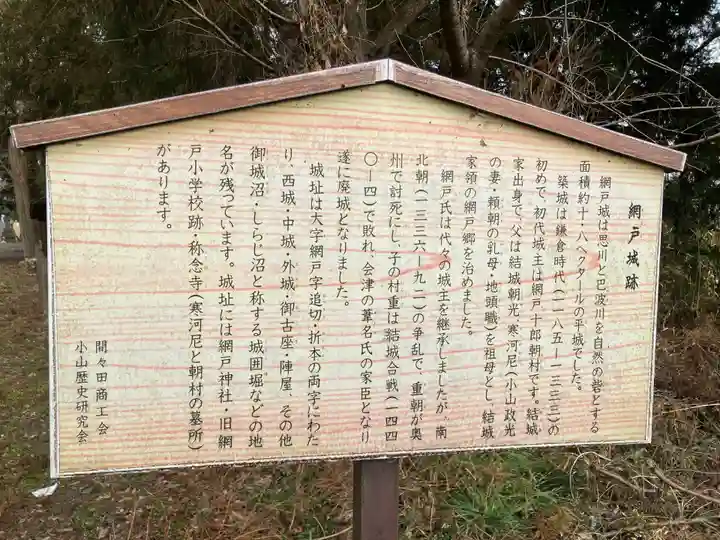 網戸城跡
網戸城は思川と巴波川を自然の砦とする
面積約十・八ヘクタールの平城でした。
築城は鎌倉時代(一一八五ー一三三三)の
初めで、初代城主は網戸十郎朝村です。結城
家出身で、父は結城朝光、寒河尼(小山政光
の妻・頼朝の乳母・地頭職)を祖母とし、結城
家領の網戸郷を治めました。
網戸氏は代々の城主を継承しましたが、南
北朝(一三三六ー九二)の争乱で、重朝が奥
州で討死にし、子の村重は結城合戦(一四四
〇ー四一)で敗れ、会津の葦名氏の家臣となり
遂に廃城となりました。
城址は大字網戸字追切・折本の両字にわた
り、西城・中城・外城・御古座・陣屋、その他
御城沼・しらじ沼と称する城囲堀などの地
名が残っています。城址には網戸神社・旧網
戸小学校跡・称念寺(寒河尼と朝村の墓所)
があります。
間々田商工会
小山歴史研究会